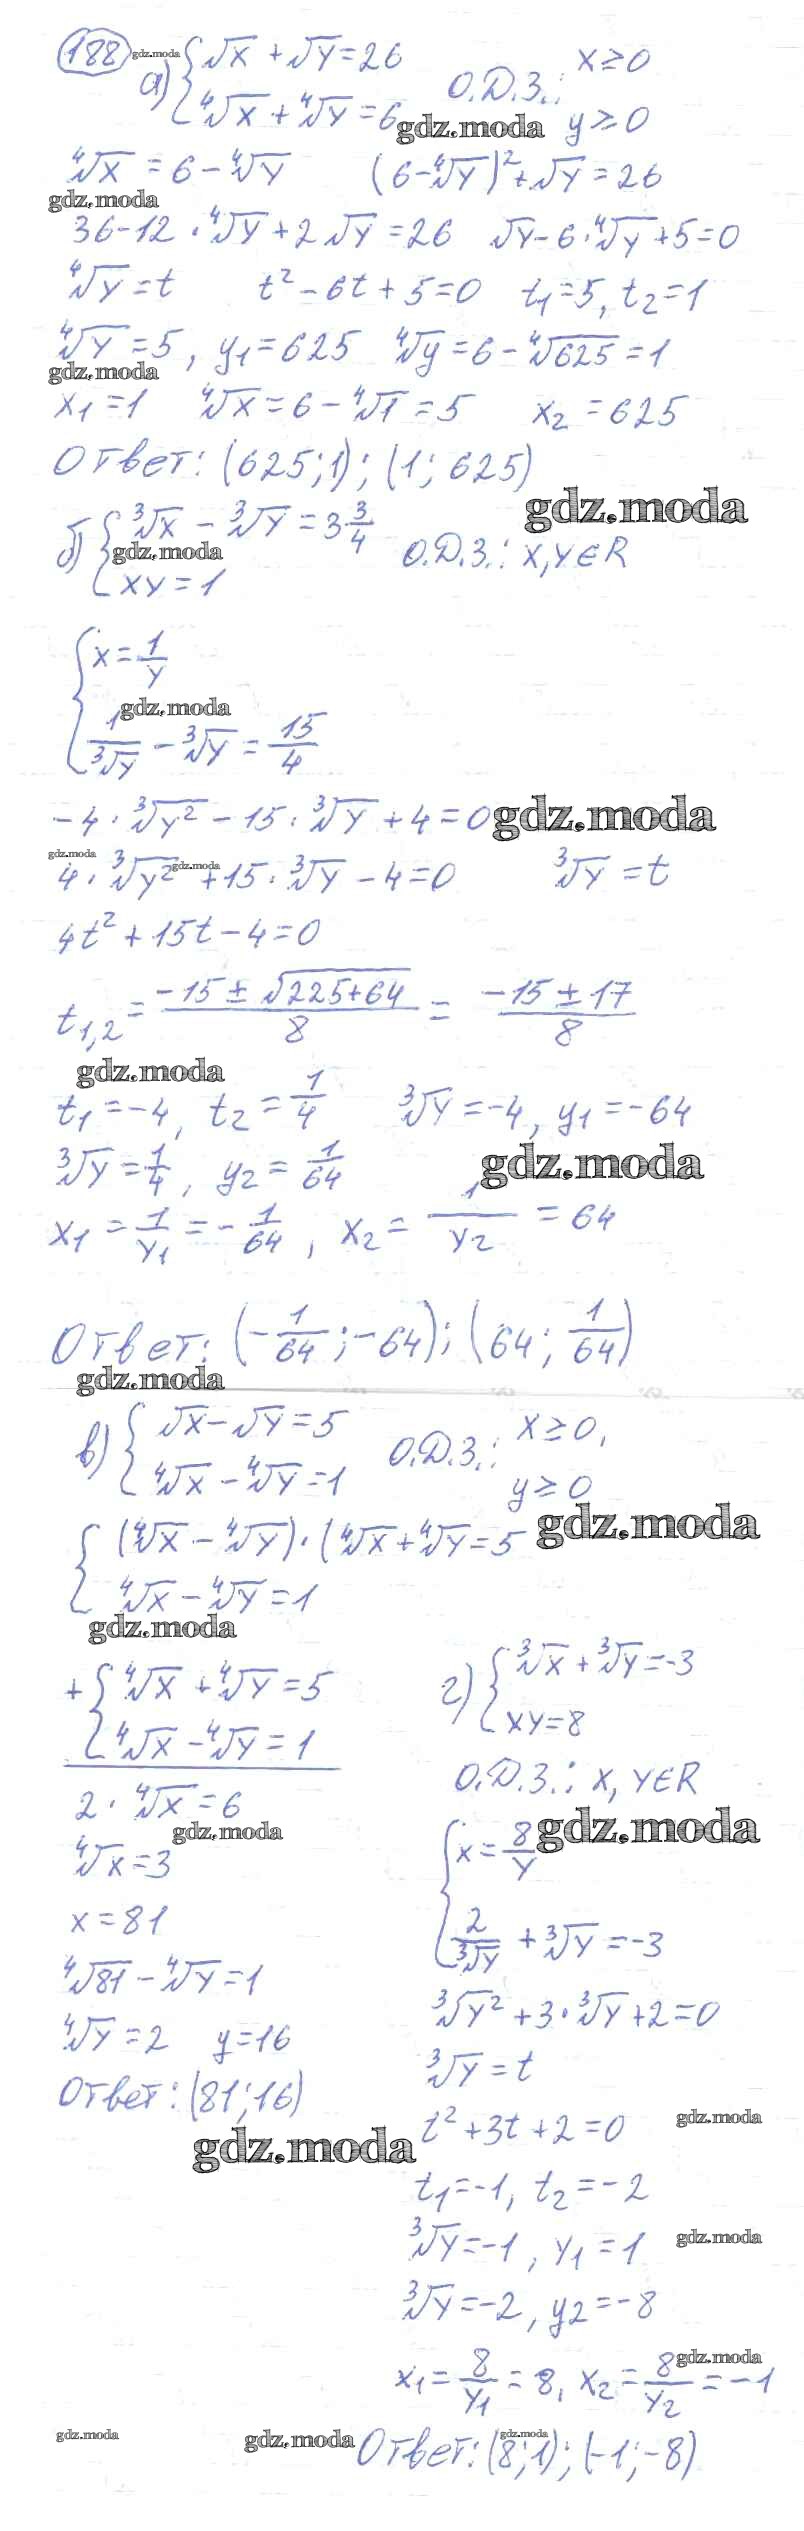 188 gdz.moda
а) { √x + √y = 26 О.Д.З.: x ≥ 0
⁴√x + ⁴√y = 6 gdz.moda y ≥ 0
⁴√x = 6 - ⁴√y (6 - ⁴√y)² + √y = 26
gdz.moda
36 - 12 · ⁴√y + 2√y = 26 √y - 6 · ⁴√y + 5 = 0
⁴√y = t t² - 6t + 5 = 0 t₁ = 5, t₂ = 1
⁴√y = 5, y₁ = 625 ⁴√y = 6 - ⁴√625 = 1
gdz.moda
x₁ = 1 ⁴√x = 6 - ⁴√1 = 5 x₂ = 625
Ответ: (625; 1); (1; 625)
gdz.moda
б) { ³√x - ³√y = 3 3/4 О.Д.З.: x, y ∈ R
gdz.moda
xy = 1
{ x = 1/y
gdz.moda
1/³√y - ³√y = 15/4
-4 · ³√y² - 15 · ³√y + 4 = 0 gdz.moda
gdz.moda gdz.moda
4 · ³√y² + 15 · ³√y - 4 = 0 ³√y = t
4t² + 15t - 4 = 0
t₁,₂ = (-15 ± √225+64)/8 = (-15 ± 17)/8
gdz.moda
t₁ = -4, t₂ = 1/4 ³√y = -4, y₁ = -64
³√y = 1/4, y₂ = 1/64 gdz.moda
x₁ = 1/y₁ = -1/64, x₂ = 1/y₂ = 64
Ответ: (-1/64; -64); (64; 1/64)
gdz.moda
в) { √x - √y = 5 О.Д.З.: x ≥ 0,
⁴√x - ⁴√y = 1 y ≥ 0
gdz.moda
{ (⁴√x - ⁴√y) · (⁴√x + ⁴√y = 5
⁴√x - ⁴√y = 1
gdz.moda
+ { ⁴√x + ⁴√y = 5
⁴√x - ⁴√y = 1
2 · ⁴√x = 6
gdz.moda
⁴√x = 3
x = 81
⁴√81 - ⁴√y = 1
⁴√y = 2 y = 16
Ответ: (81; 16)
gdz.moda
г) { ³√x + ³√y = -3
xy = 8
О.Д.З.: x, y ∈ R
{ x = 8/y gdz.moda
2/³√y + ³√y = -3
³√y² + 3 · ³√y + 2 = 0
³√y = t
t² + 3t + 2 = 0 gdz.moda
t₁ = -1, t₂ = -2
³√y = -1, y₁ = 1 gdz.moda
³√y = -2, y₂ = -8
gdz.moda
x₁ = 8/y₁ = 8, x₂ = 8/y₂ = -1
gdz.moda gdz.moda gdz.moda
Ответ: (8; 1); (-1; -8)